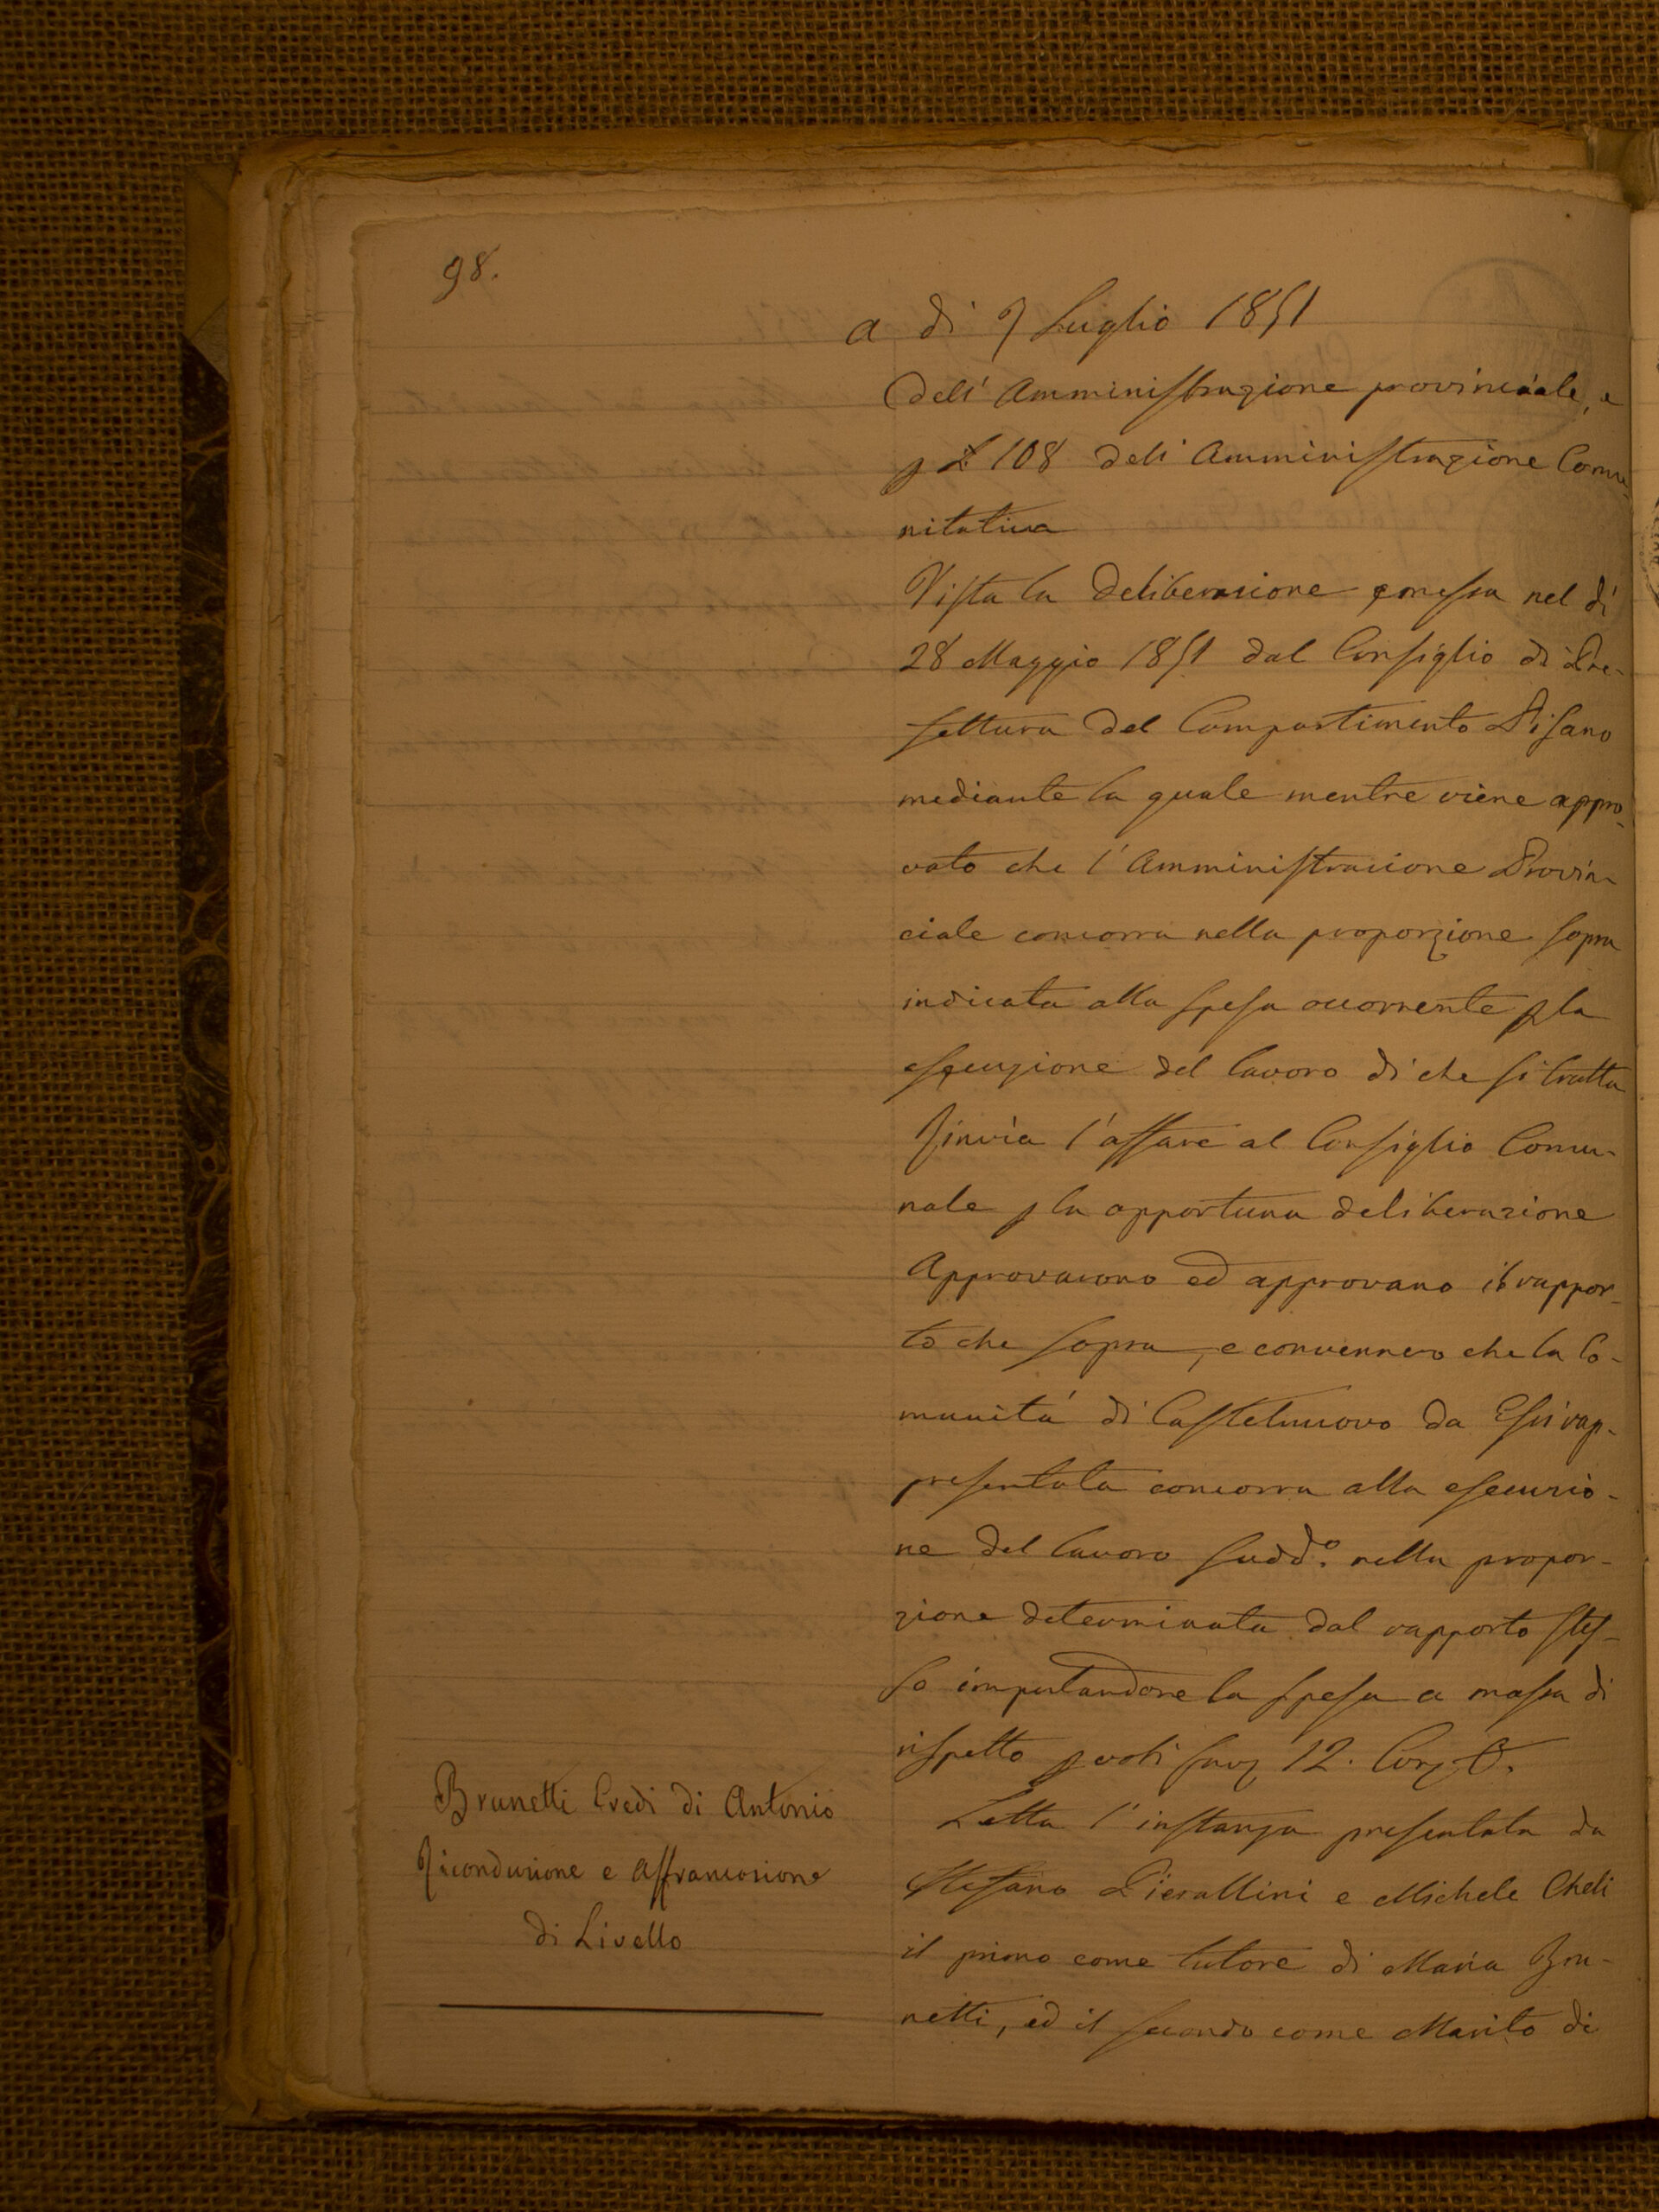 98.
a di 7 Luglio 1851
Dell' Amministrazione provinciale, e
p £ 108 dell' Amministrazione Comu-
nitativa
Vista la Deliberazione emessa nel dì
28 Maggio 1851 dal Consiglio di Pre-
fettura del Compartimento Pisano
mediante la quale mentre viene appro-
vato che l'Amministrazione Provin-
ciale concorra nella proporzione sopra
indicata alla spesa occorrente p la
esecuzione del lavoro di che si tratta
Rinvia l'affare al Consiglio Comu-
nale p la opportuna deliberazione
Approvarono ed approvano il rappor-
to che sopra, e convennero che la Co-
munitá di Castelnuovo da Essi rap-
presentata concorra alla esecuzio-
ne del lavoro sudd.o nella propor-
zione determinata dal rapporto stes-
so imputandone la spesa a massa di
rispetto p voti fav 12. Con 0.
Brunetti Eredi di Antonio
Riconduzione e Affrancazione
di Livello
Letta l'instanza presentata da
Stefano Pierallini e Michele Cheli
il primo come tutore di Maria Bru-
netti, ed il secondo come Marito di